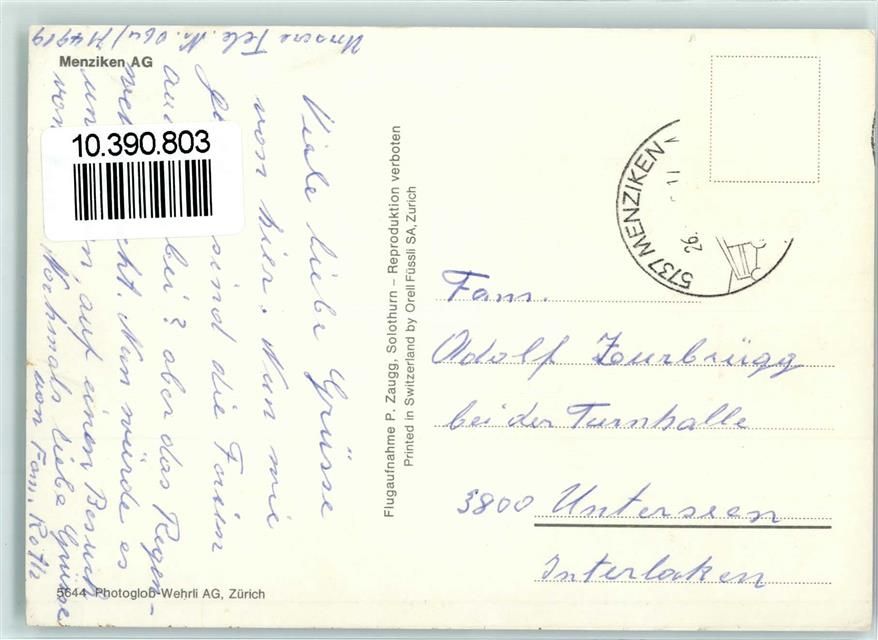 Menziken AG
10.390.803
Unsere Tele. Nr. 064/
Viele liebe Grüsse
von hier. Nun wie
sind die Ferien
bei? aber das Regen-
Nun würde es
auf einen Besuch
von Nochmals liebe Grüsse
von Fam. Roth
5644 Photoglob-Wehrli AG, Zürich
Flugaufnahme P. Zaugg, Solothurn – Reproduktion verboten
Printed in Switzerland by Orell Füssli SA, Zurich
5737 MENZIKEN
26.
Fam.
Adolf Zurbrügg
bei der Turnhalle
3800 Unterseen
Interlaken